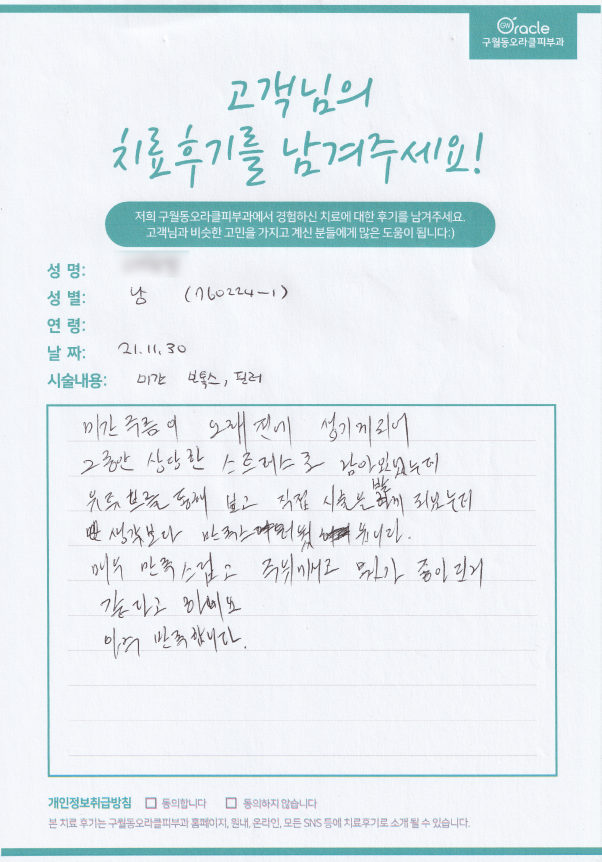 GW Oracle
구월동오라클피부과
고객님의
치료후기를 남겨주세요!
저희 구월동오라클피부과에서 경험하신 치료에 대한 후기를 남겨주세요.
고객님과 비슷한 고민을 가지고 계신 분들에게 많은 도움이 됩니다:)
성 명:
성 별: 남 (760224-1)
연 령:
날 짜: 21.11.30
시술내용: 미간 보톡스, 필러
미간 주름이 오래 전에 생기게되어
그동안 상당한 스트레스로 남아있었는데
유튜브를 통해 보고 직접 시술을 받게 되었는데
생각보다 만족스러웠습니다.
매우 만족스럽고 주위에서도 뭐가 좋아진거
같다고 하네요
아주 만족합니다.
개인정보취급방침 동의합니다 동의하지 않습니다
본 치료 후기는 구월동오라클피부과 홈페이지, 원내, 온라인, 모든 SNS 등에 치료후기로 소개 될 수 있습니다.